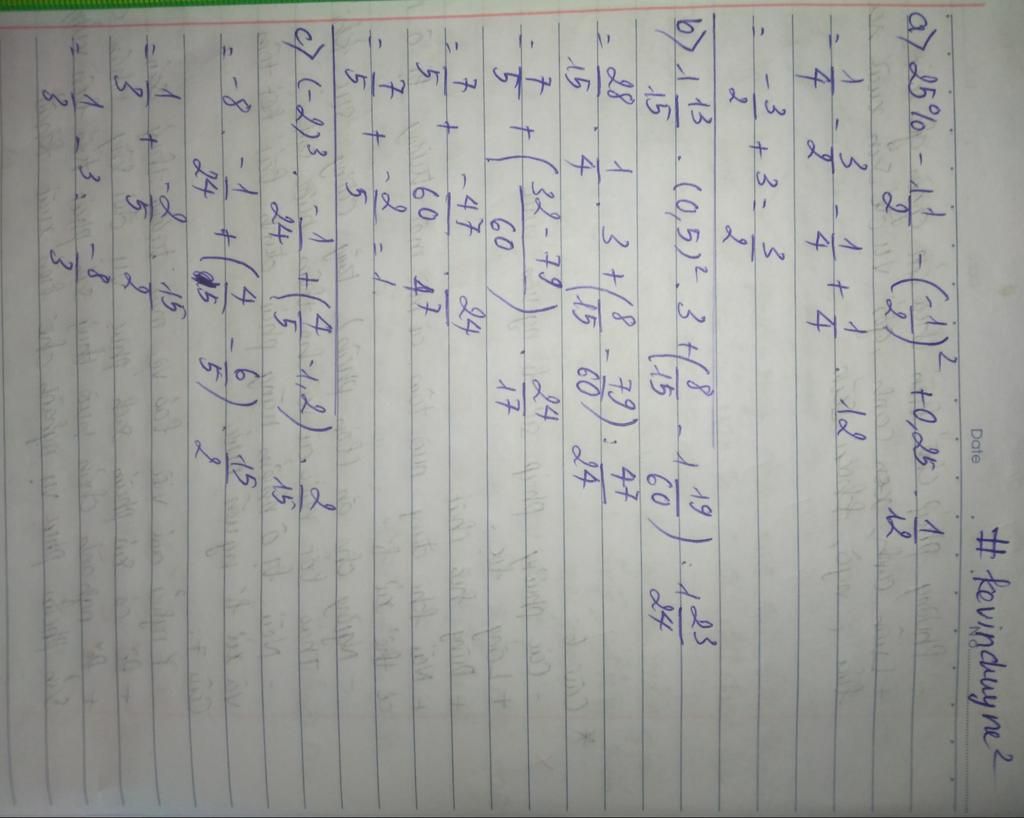 Date
# kevinduyne²
a) 25% - 1 1/2 - (-1/2)² + 0,25 : 1/12
= 1/4 - 3/2 - 1/4 + 1/4 . 12
= -3/2 + 3 = 3/2
b) 1 13/15 . (0,5)² . 3 + (8/15 - 1 19/60) : 1 23/24
= 28/15 . 1/4 . 3 + (8/15 - 79/60) : 47/24
= 7/5 + (32 - 79/60) . 24/17
= 7/5 + -47/60 . 24/47
= 7/5 + -2/5 = 1.
c) (-2)³ . -1/24 + (4/5 - 1,2) : 2/15
= -8 . -1/24 + (4/5 - 6/5) . 15/2
= 1/3 + -2/5 . 15/2
= 1/3 - 3 = -8/3